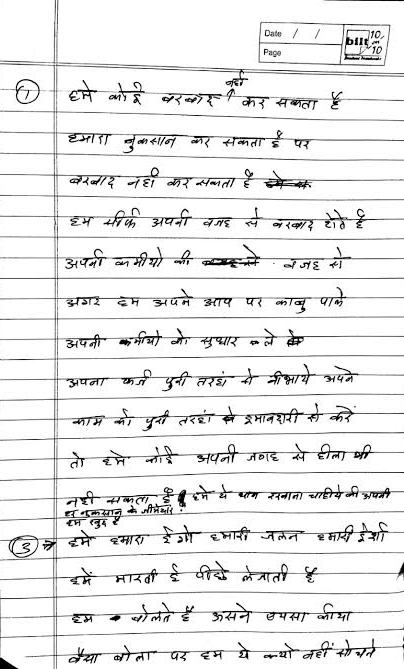 Date / /
Page
bilt 10 on 10
Student Notebooks
① हमे कोई बरबाद नही कर सकता है
हमारा नुकसान कर सकता है पर
बरबाद नही कर सकता है
हम सीर्फ अपनी वजह से बरबाद होते है
अपनी कमीयो की वजह से
अगर हम अपने आप पर काबु पाले
अपनी कमीयो को सुधार ले
अपना फर्ज पुरी तरहां से नीभाये अपने
काम को पुरी तरहां से इमानदारी से करे
तो हमे कोई अपनी जगह से हीला भी
नही सकता है हमे ये याद रखना चाहीये की अपनी
हर नुकसान के जीमेदार
हम खुद है
③ → हमे हमारा ईगो हमारी जलन हमारी ईर्शा
हमें मारती है पीछे लेजाती है
हम बोलते है उसने एयसा कीया
वैसा बोला पर हम ये क्यो नहीं सोचते